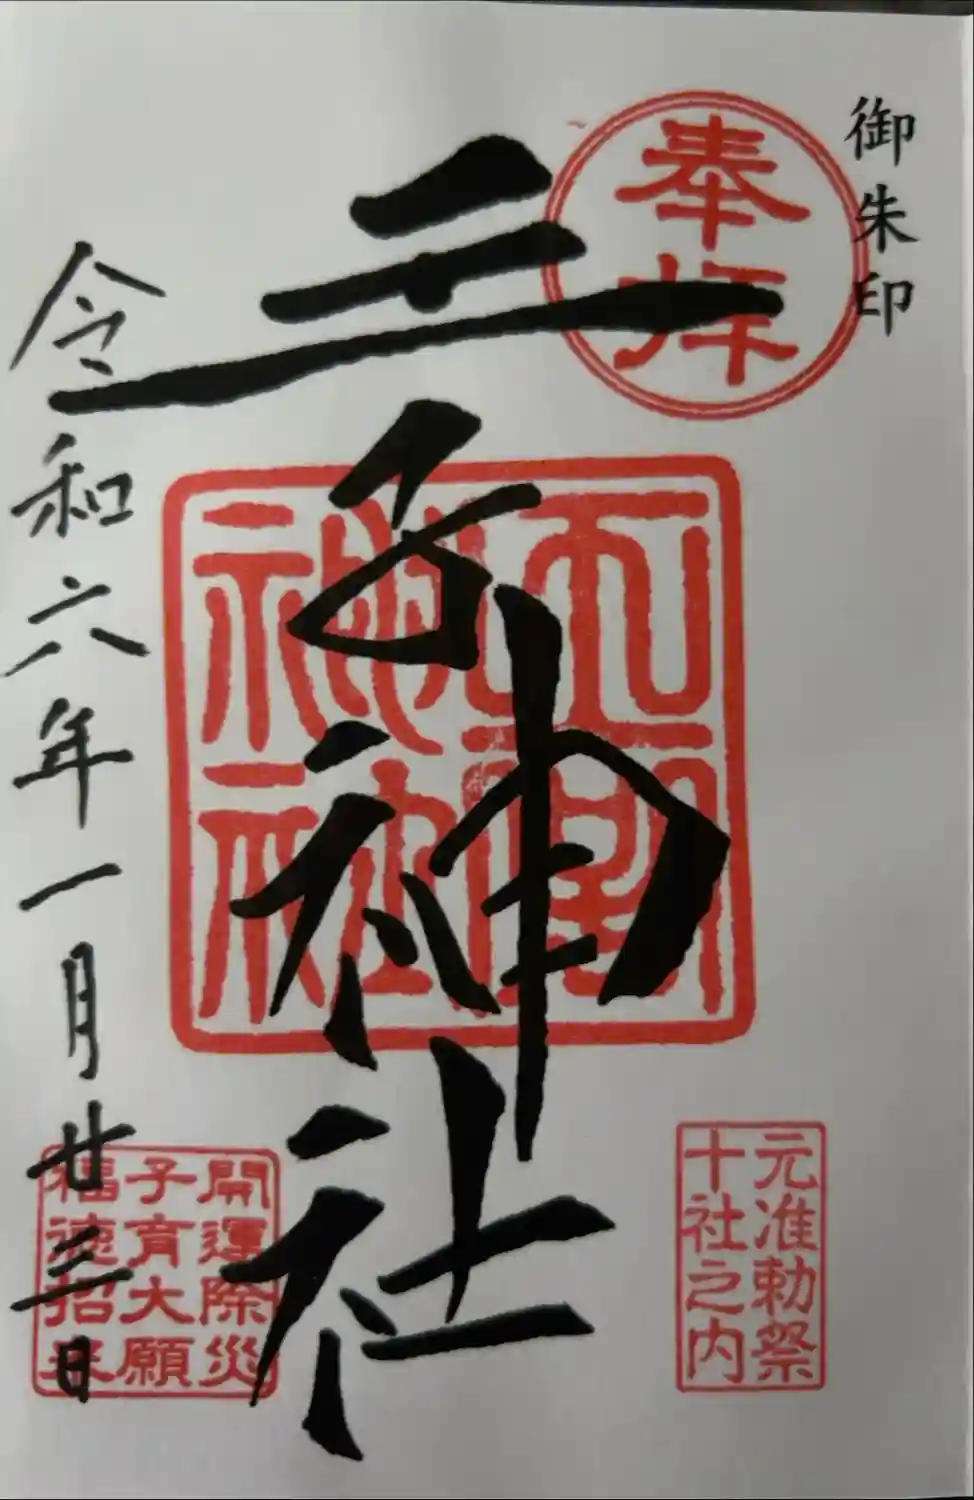 御朱印
奉拝
元准勅祭
十社之内
王子神社
開運除災
子育大願
福徳招来
令和六年一月廿三日